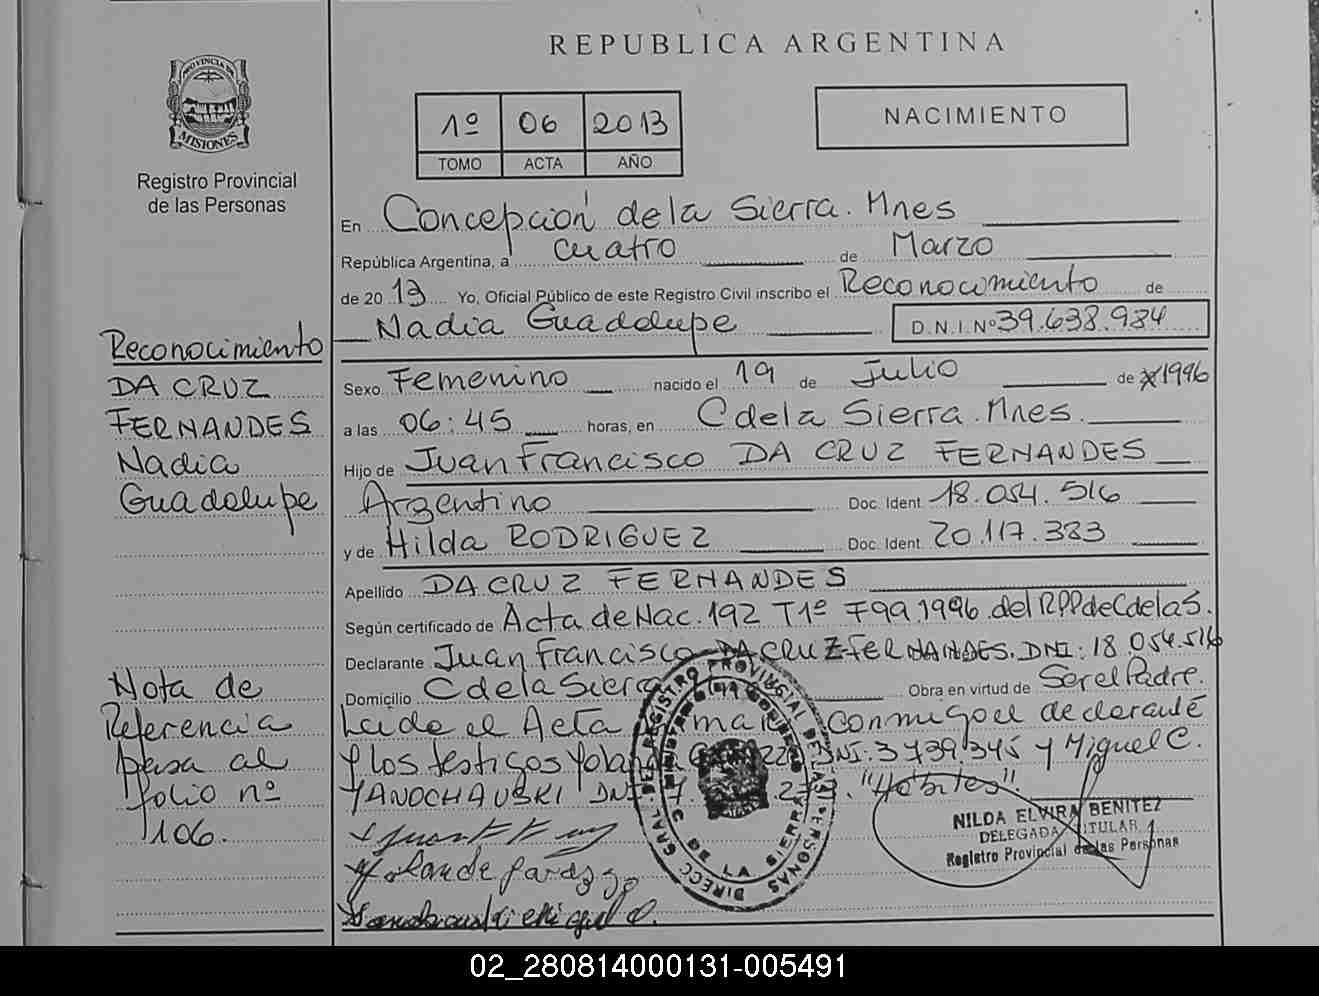 REPUBLICA ARGENTINA
PROVINCIA DE
MISIONES
Registro Provincial
de las Personas
1º 06 2013
TOMO ACTA AÑO
NACIMIENTO
En Concepción de la Sierra. Mnes
República Argentina, a cuatro de Marzo
de 2013 Yo, Oficial Público de este Registro Civil inscribo el Reconocimiento de
Nadia Guadalupe D.N.I.Nº 39.638.984
Sexo Femenino nacido el 19 de Julio de 1996
a las 06:45 horas, en C de la Sierra. Mnes.
Hijo de Juan Francisco DA CRUZ FERNANDES
Argentino Doc. Ident. 18.054.516
y de Hilda RODRIGUEZ Doc. Ident. 20.117.383
Apellido DA CRUZ FERNANDES
Según certificado de Acta de Nac. 192 T1º F99 1996 del RPP de C de la S.
Declarante Juan Francisco DA CRUZ FERNANDES. DNI: 18.054.516
Domicilio C de la Sierra Obra en virtud de Ser el Padre.
Leido el Acta conmigo el declarante
y los testigos DNI. 3739.345 y Miguel C.
YANOCHAUSKI DNI "Hábiles".
Reconocimiento
DA CRUZ
FERNANDES
Nadia
Guadalupe
Nota de
Referencia
pasa al
folio nº
106.
NILDA ELVIRA BENITEZ
DELEGADA TITULAR
Registro Provincial de las Personas
DIRECC. GRAL. DEL REGISTRO PROVINCIAL DE LAS PERSONAS
C. DE LA SIERRA
02_280814000131-005491